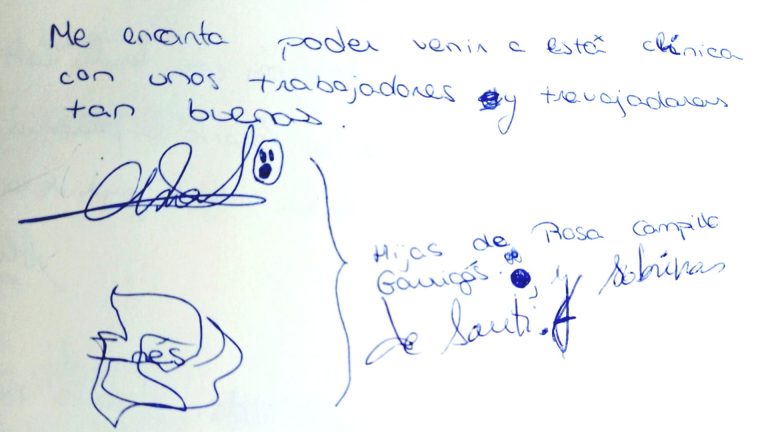 Me encanta poder venir a está clínica
con unos trabajadores y trevajadaras
tan buenas.
Inés
Hijas de Rosa Campillo
Garrigós. y sobrinas
de Santi.